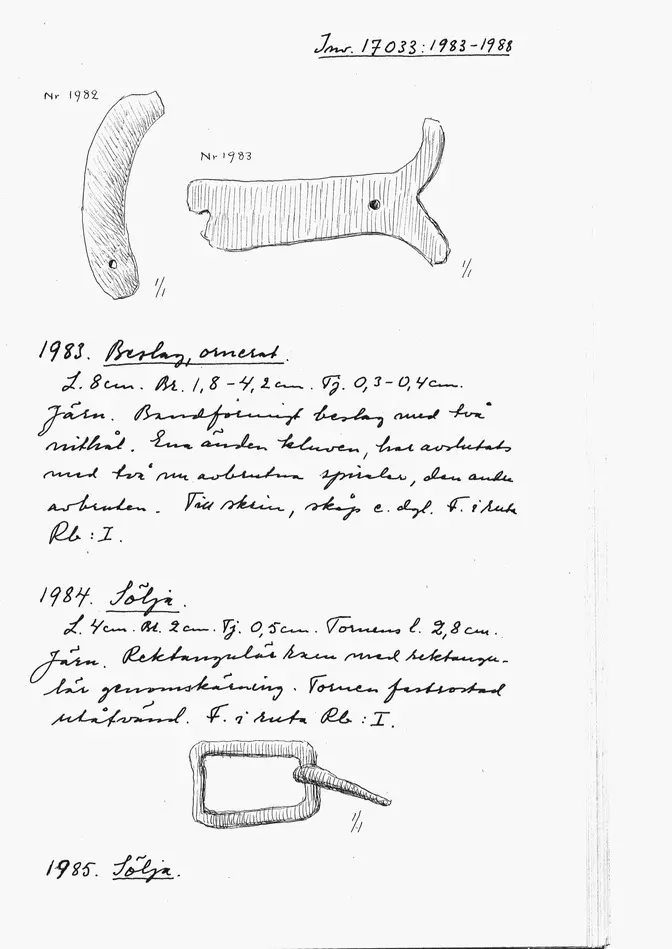 Inv. 17033:1983-1988
Nr 1982
Nr 1983
1/1
1/1
1983. Beslag, ornerat.
L. 8cm. Br. 1,8-4,2cm. Tj. 0,3-0,4cm.
Järn. Bandformigt beslag med två
nithål. Ena änden kluven, har avslutats
med två nu avbrutna spiraler, den andra
avbruten. Till skrin, skåp e. dyl. F. i ruta
Rb:I.
1984. Sölja.
L. 4cm. Br. 2cm. Tj. 0,5cm. Tornens l. 2,8cm.
Järn. Rektangulär ram med rektangu-
lär genomskärning. Tornen fastrostad
utåtvänd. F. i ruta Rb:I.
1/1
1985. Sölja.